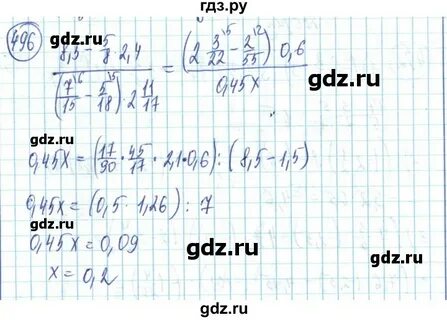 гдз.ру
496
8,5 - 5/8 · 2,4 / (7/15^6 - 5/18^5) · 2 11/17 = (2 3/22^5 - 2/55^2) · 0,6 / 0,45x
gdz.ru
0,45x = (17/90 · 45/17 · 2,1 · 0,6) : (8,5 - 1,5)
0,45x = (0,5 · 1,26) : 7
0,45x = 0,09
x = 0,2
gdz.ru
gdz.ru
gdz.ru
gdz.ru